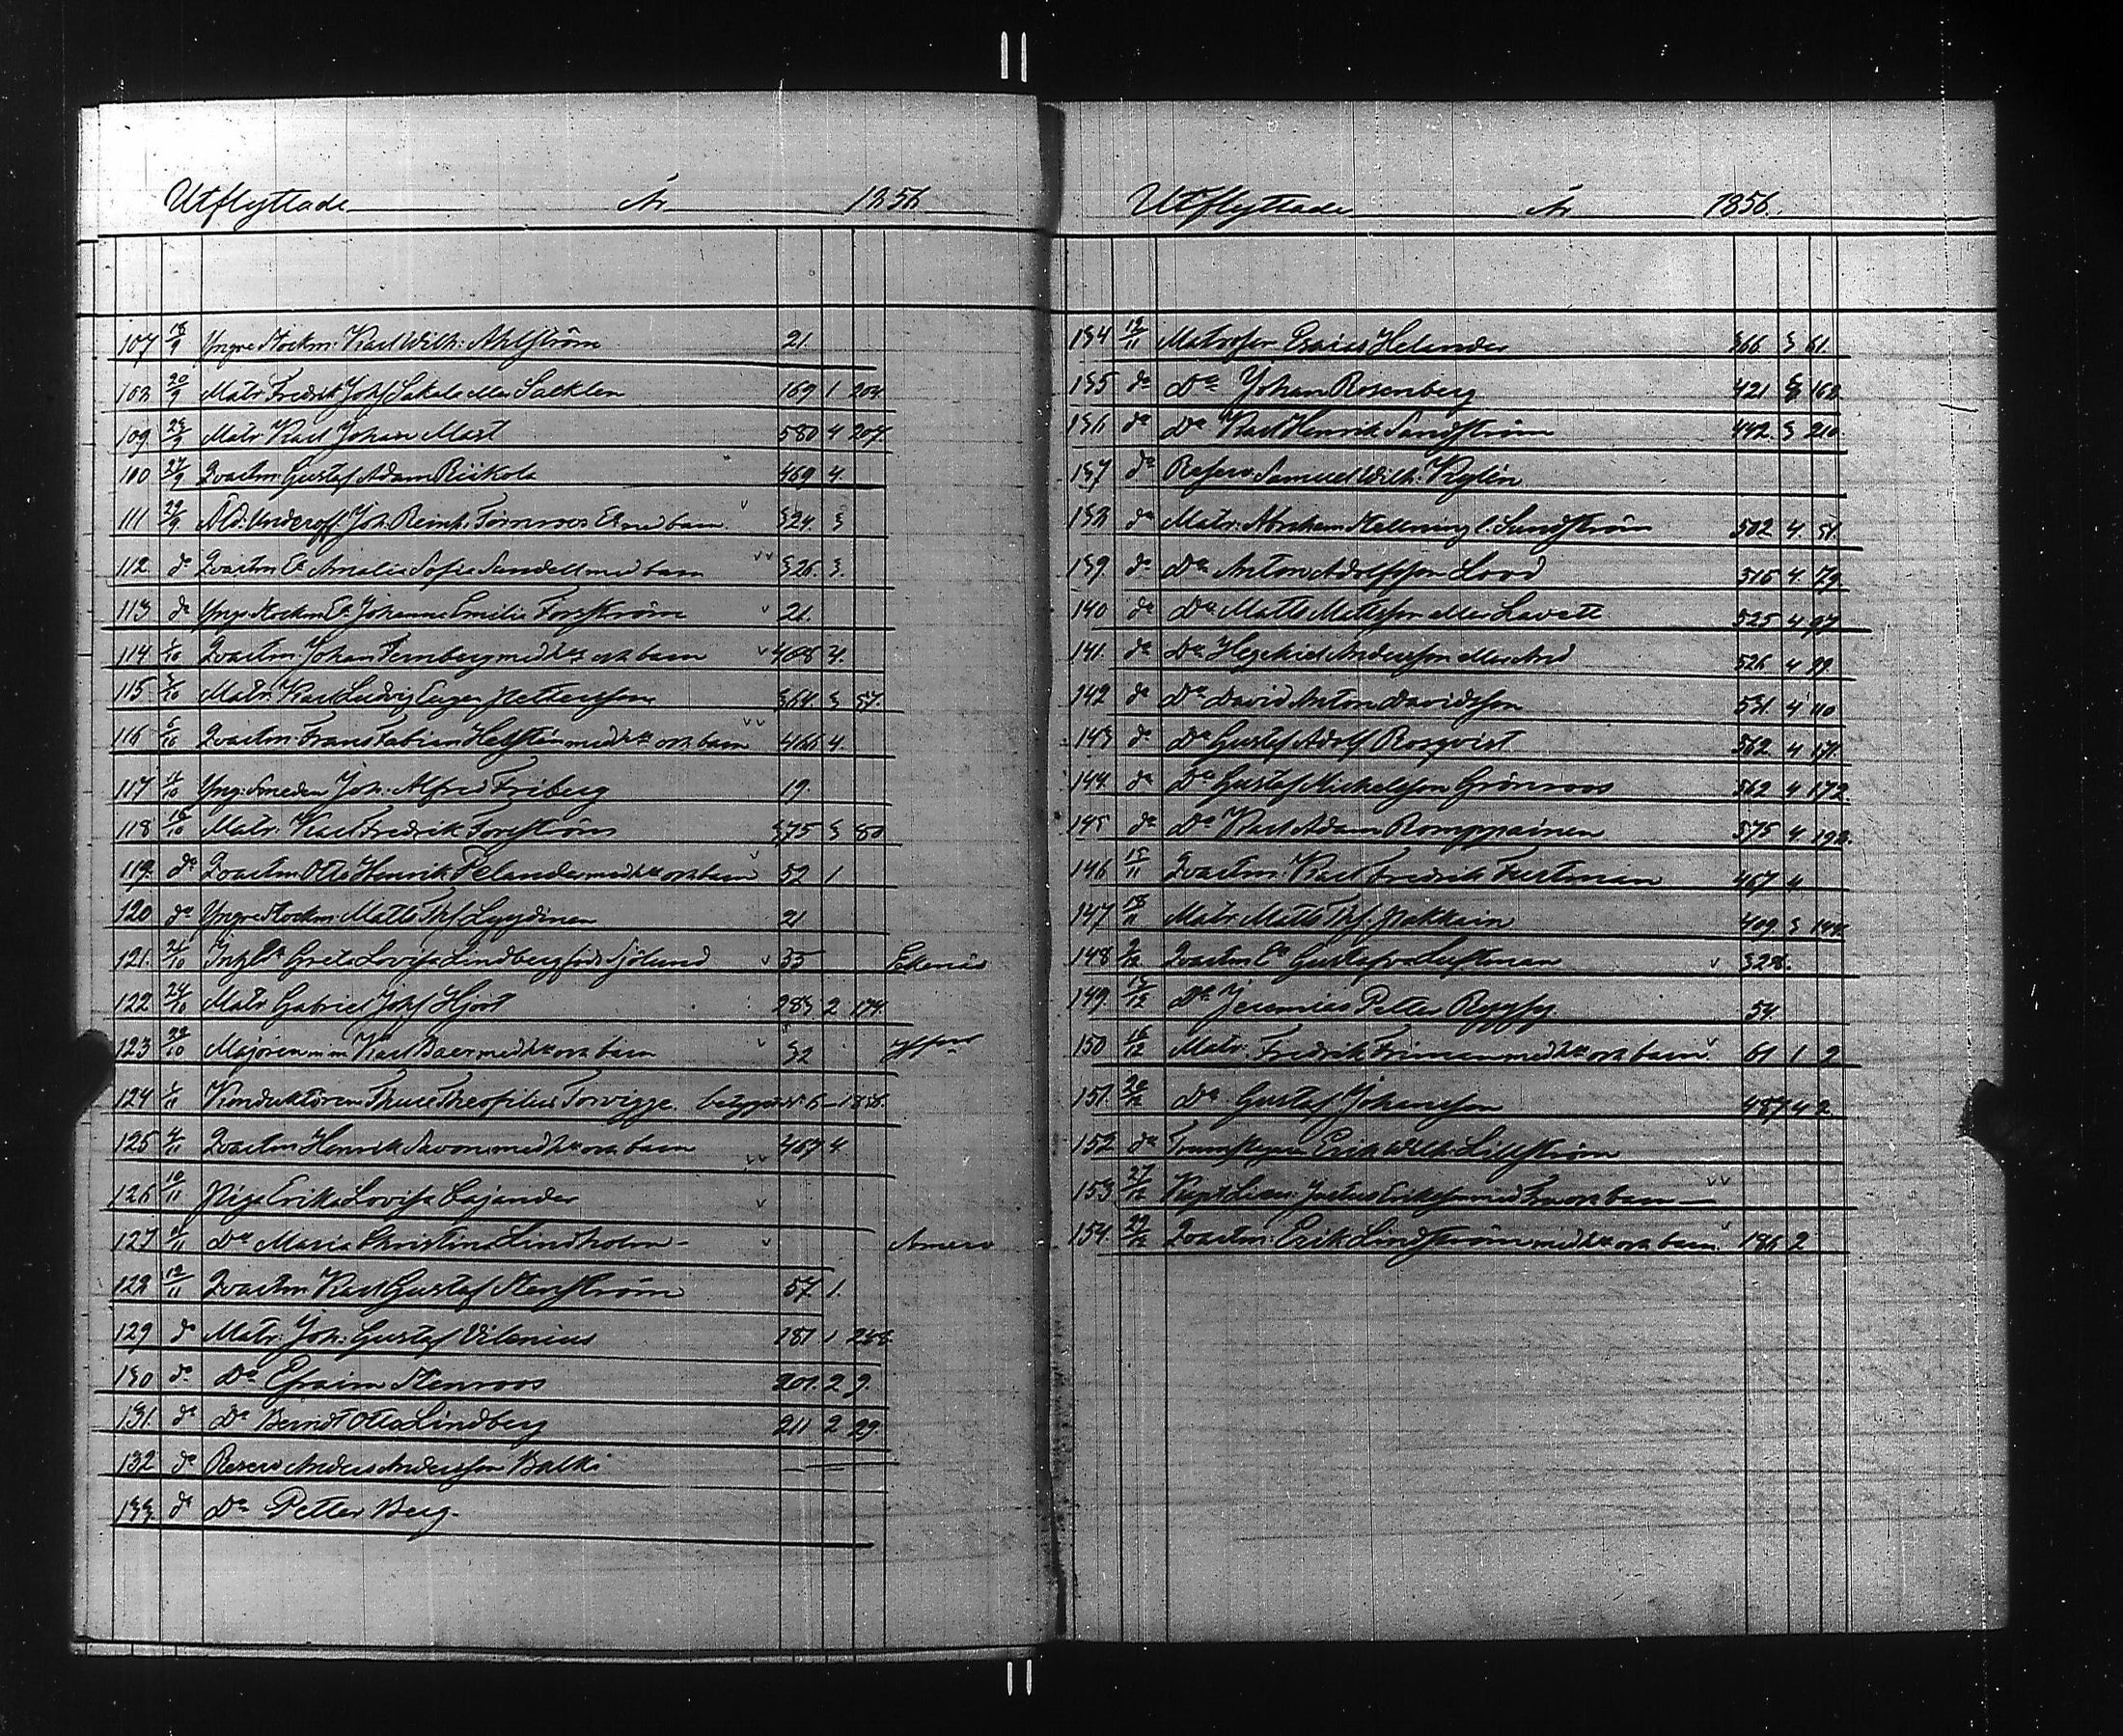 Utflyttade År 1856
107 18/9 Yngre Stockm: Karl Wilh: Ahlström 21
108 20/9 Matr Fredrik Johf Sakala eller Sacklen 169 1 204
109 23/9 Matr. Karl Johan Mast 580 4 207.
100 27/9 Qvartm: Gustaf Adam Riikola 469 4.
111 29/9 Afd: Underoff: Joh. Reinh. Törnroos Ea med barn 324. 3
112 do Qvartm Ea Amalia Sofia Sandell med barn 326. 3.
113 do Yngr Stockm Ea Johanna Emilia Forsström 21.
114 1/10 Qvartm Johan Fernberg med hu och barn 468 4.
115 3/10 Matr. Karl Ludvig Eugen Pettersson 364. 3 57.
116 6/10 Qvartm. Frans Fabian Helstén med hu och barn 466 4.
117 11/10 Yng: Smeden Joh: Alfred Friberg 19.
118 18/10 Matr: Karl Fredrik Forsström 375 3 80
119. do Qvartm Otto Henrik Helander med hu och barn 52 1
120 do Yngre Stockm Matts Thf Lyydinen 21
121. 21/10 Greta Lovisa Lindberg född Sjölund 35 Ekenäs
122 24/10 Matr Gabriel Johf Hjort 283 2 174.
123 29/10 Majoren m m Karl Baer med hu och barn 32 Hfors
124 1/11 Konduktören Thure Theofilus Torvigge. 1856.
125 4/11 Qvartm: Henrik Savon med hu och barn 467 4.
126 10/11 Piga Erika Lovisa Cajander
127 11/11 Da Maria Christina Lindholm
128 12/11 Qvartm Karl Gustaf Stenström 57 1.
129 do Matr: Joh: Gustaf Vilenius 187 1
130 do Da Efraim Stenroos 201. 2 9.
131. do Da Berndt Otto Lindberg 211 2 29.
132 do Reserv Anders Andersson Balki
133. do Da Petter Berg.
Utflyttade År 1856.
134 12/11 Matrosen Esaias Helander 366 3 61.
135 do Da Johan Rosenberg 421 168
136 do Da Karl Henrik Sandström 442. 3 210.
137 do Reserv. Samuel Wilh: Kylén
138 do Matr. Abraham Kellning l. Sundström 502 4. 51.
139. do Da Anton Adolfsson Lood 516 4. 79.
140 do Da Matts Mattsson eller Lavett 525 4 97
141. do Da Hezekiel Andersson eller And 526 4 99.
142 do Da David Anton Davidsson 531 4 110
143 do Da Gustaf Adolf Rosqvist 562 4 171.
144. do Da Gustaf Michelsson Grönroos 562 4 172.
145 do Da Karl Adam Romppainen 575 4 198.
146 15/11 Qvartm: Karl Fredrik Furtman 467 4
147 18/11 Matr Matts Thf Pakkain 409 3 144.
148 2/12 Qvartm Ea Gustafva Luftman 328.
149. 12/12 Da Jeremias Petter 54
150 16/12 Matr. Fredrik Friman med hu och barn 61 1 2
151. 20/12 Da Gustaf Johansson 487 4 2
152 do Erik Wilh: Lillström
153 27/12 Kapt Lieu: Justus Eriksson med Fru och barn
154. 29/12 Qvartm: Erik Lindström med hu och barn 186 2